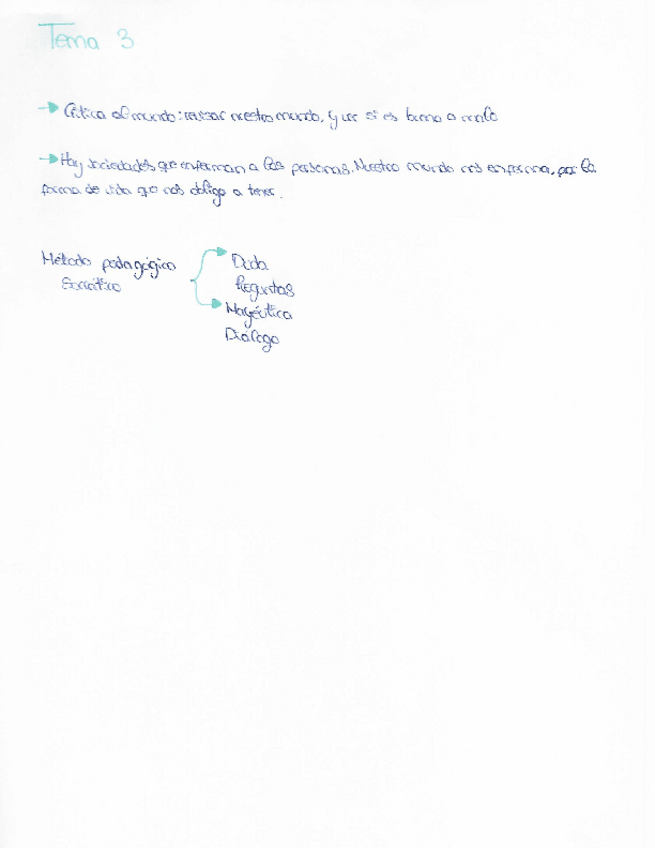 Tema 3
→ Crítica al mundo: revisar nuestro mundo, y ver si es bueno o malo
→ Hay sociedades que enferman a las personas. Nuestro mundo nos enferma, por la
forma de vida que nos obliga a tener.
Método pedagógico
Socrático
→ Duda
Preguntas
→ Mayéutica
Diálogo